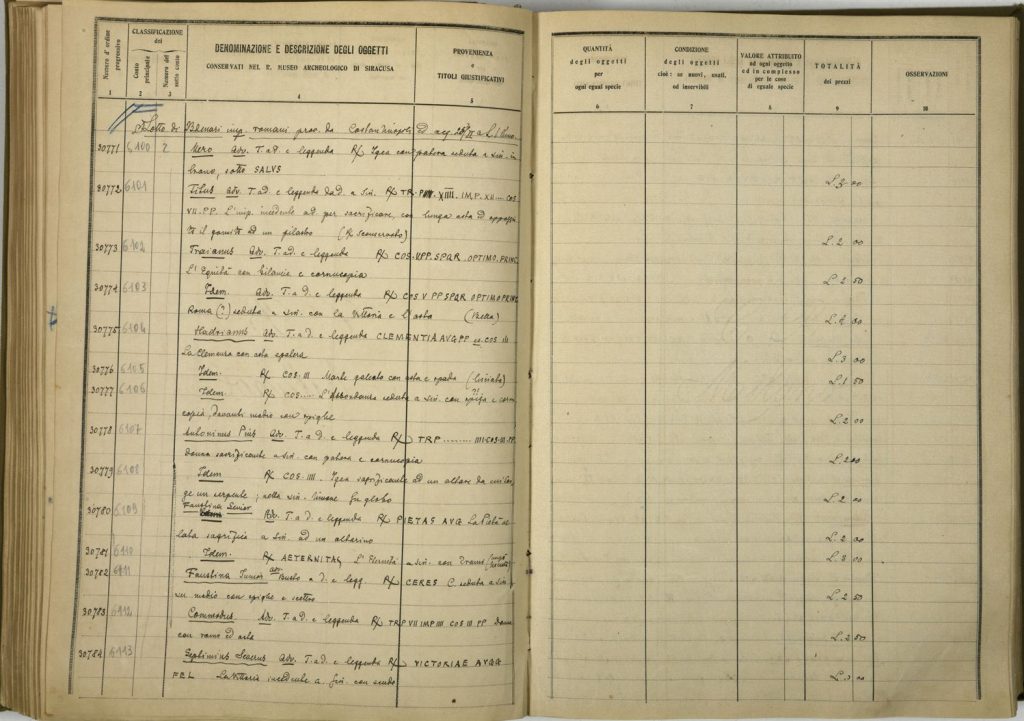 Numero d'ordine progressivo
CLASSIFICAZIONE del
Conto principale
Numero del sotto conto
DENOMINAZIONE E DESCRIZIONE DEGLI OGGETTI
CONSERVATI NEL R. MUSEO ARCHEOLOGICO DI SIRACUSA
PROVENIENZA
e
TITOLI GIUSTIFICATIVI
QUANTITÀ
degli oggetti
per
ogni egual specie
CONDIZIONE
degli oggetti
cioè: se nuovi, usati,
od inservibili
VALORE ATTRIBUITO
ad ogni oggetto
ed in complesso
per le cose
di eguale specie
TOTALITÀ
dei prezzi
OSSERVAZIONI
1 2 3 4 5 6 7 8 9 10
Lotto di Denari imp. romani prov. da Costantinopoli
30771 6100 2 Nero Adv. T. a d. e leggenda R/ Igea con patera seduta a sin. in
trono, sotto SALVS L. 3 00
30772 6101 Titus Adv. T. ad. e leggenda a sin. R/ TR. XIIII. IMP. XII COS
VII. PP. L'imp. incedente ad per sacrificare, con lunga asta ed
il gomito ad un pilastro L. 2 00
30773 6102 Traianus Adv. T. ad. e leggenda R/ COS. V PP. SPQR. OPTIMO. PRINC
L'Equità con bilancia e cornucopia L. 2 50
30774 6103 Idem. Adv. T. a d. e leggenda R/ COS V PP SPQR OPTIMO PRINC
Roma (?) seduta a sin. con la Vittoria e l'asta L. 2 00
30775 6104 Hadrianus Adv. T. ad. e leggenda CLEMENTIA AVG PP COS III
La Clemenza con asta e patera L. 3 00
30776 6105 Idem. R/ COS. III Marte galeato con asta e spada L. 1 50
30777 6106 Idem. R/ COS.... L'Abbondanza seduta a sin. con spiga e cornu
copia, davanti modio con spighe L. 2 00
30778 6107 Antoninus Pius Adv. T. a d. e leggenda R/ TRP ......... IIII-COS-III-PP.
Donna sacrificante a sin. con patera e cornucopia L. 2 00
30779 6108 Idem R/ COS. IIII. Igea sacrificante ad un altare da cui sor
ge un serpente; nella sin. timone su globo L. 2 00
30780 6109 Faustina Senior Adv. T. a d. e leggenda R/ PIETAS AVG La Pietà ve
lata sacrifica a sin. ad un altarino L. 2 00
30781 6110 Idem. R/ AETERNITAS L'Eternità a sin. con L. 2 00
30782 6111 Faustina Junior adv. Busto a d. e legg. R/ CERES C. seduta a sin.
su modio con spighe e scettro L. 2 50
30783 6112 Commodus. Adv. T. a d. e leggenda R/ TRP VII IMP IIII COS III PP Donna
con ramo ed asta L. 2 50
30784 6113 Septimius Severus Adv. T. a d. e leggenda R/ VICTORIAE AVGG
FEL La Vittoria incedente a sin. con scudo L. 3 00